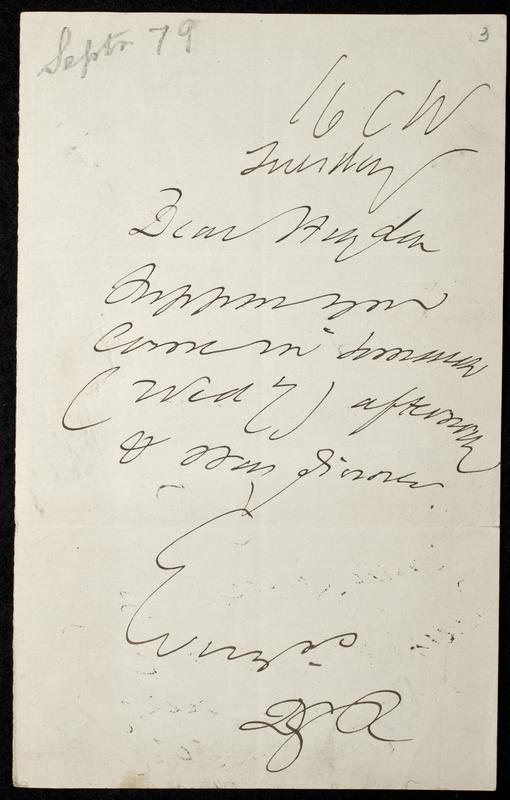 Septr 79
3
16 CW
Tuesday
Dear Heydon
Suppose you
come in tomorrow
(Wedy) afternoon
& stay dinner.
Ever yrs
DGR